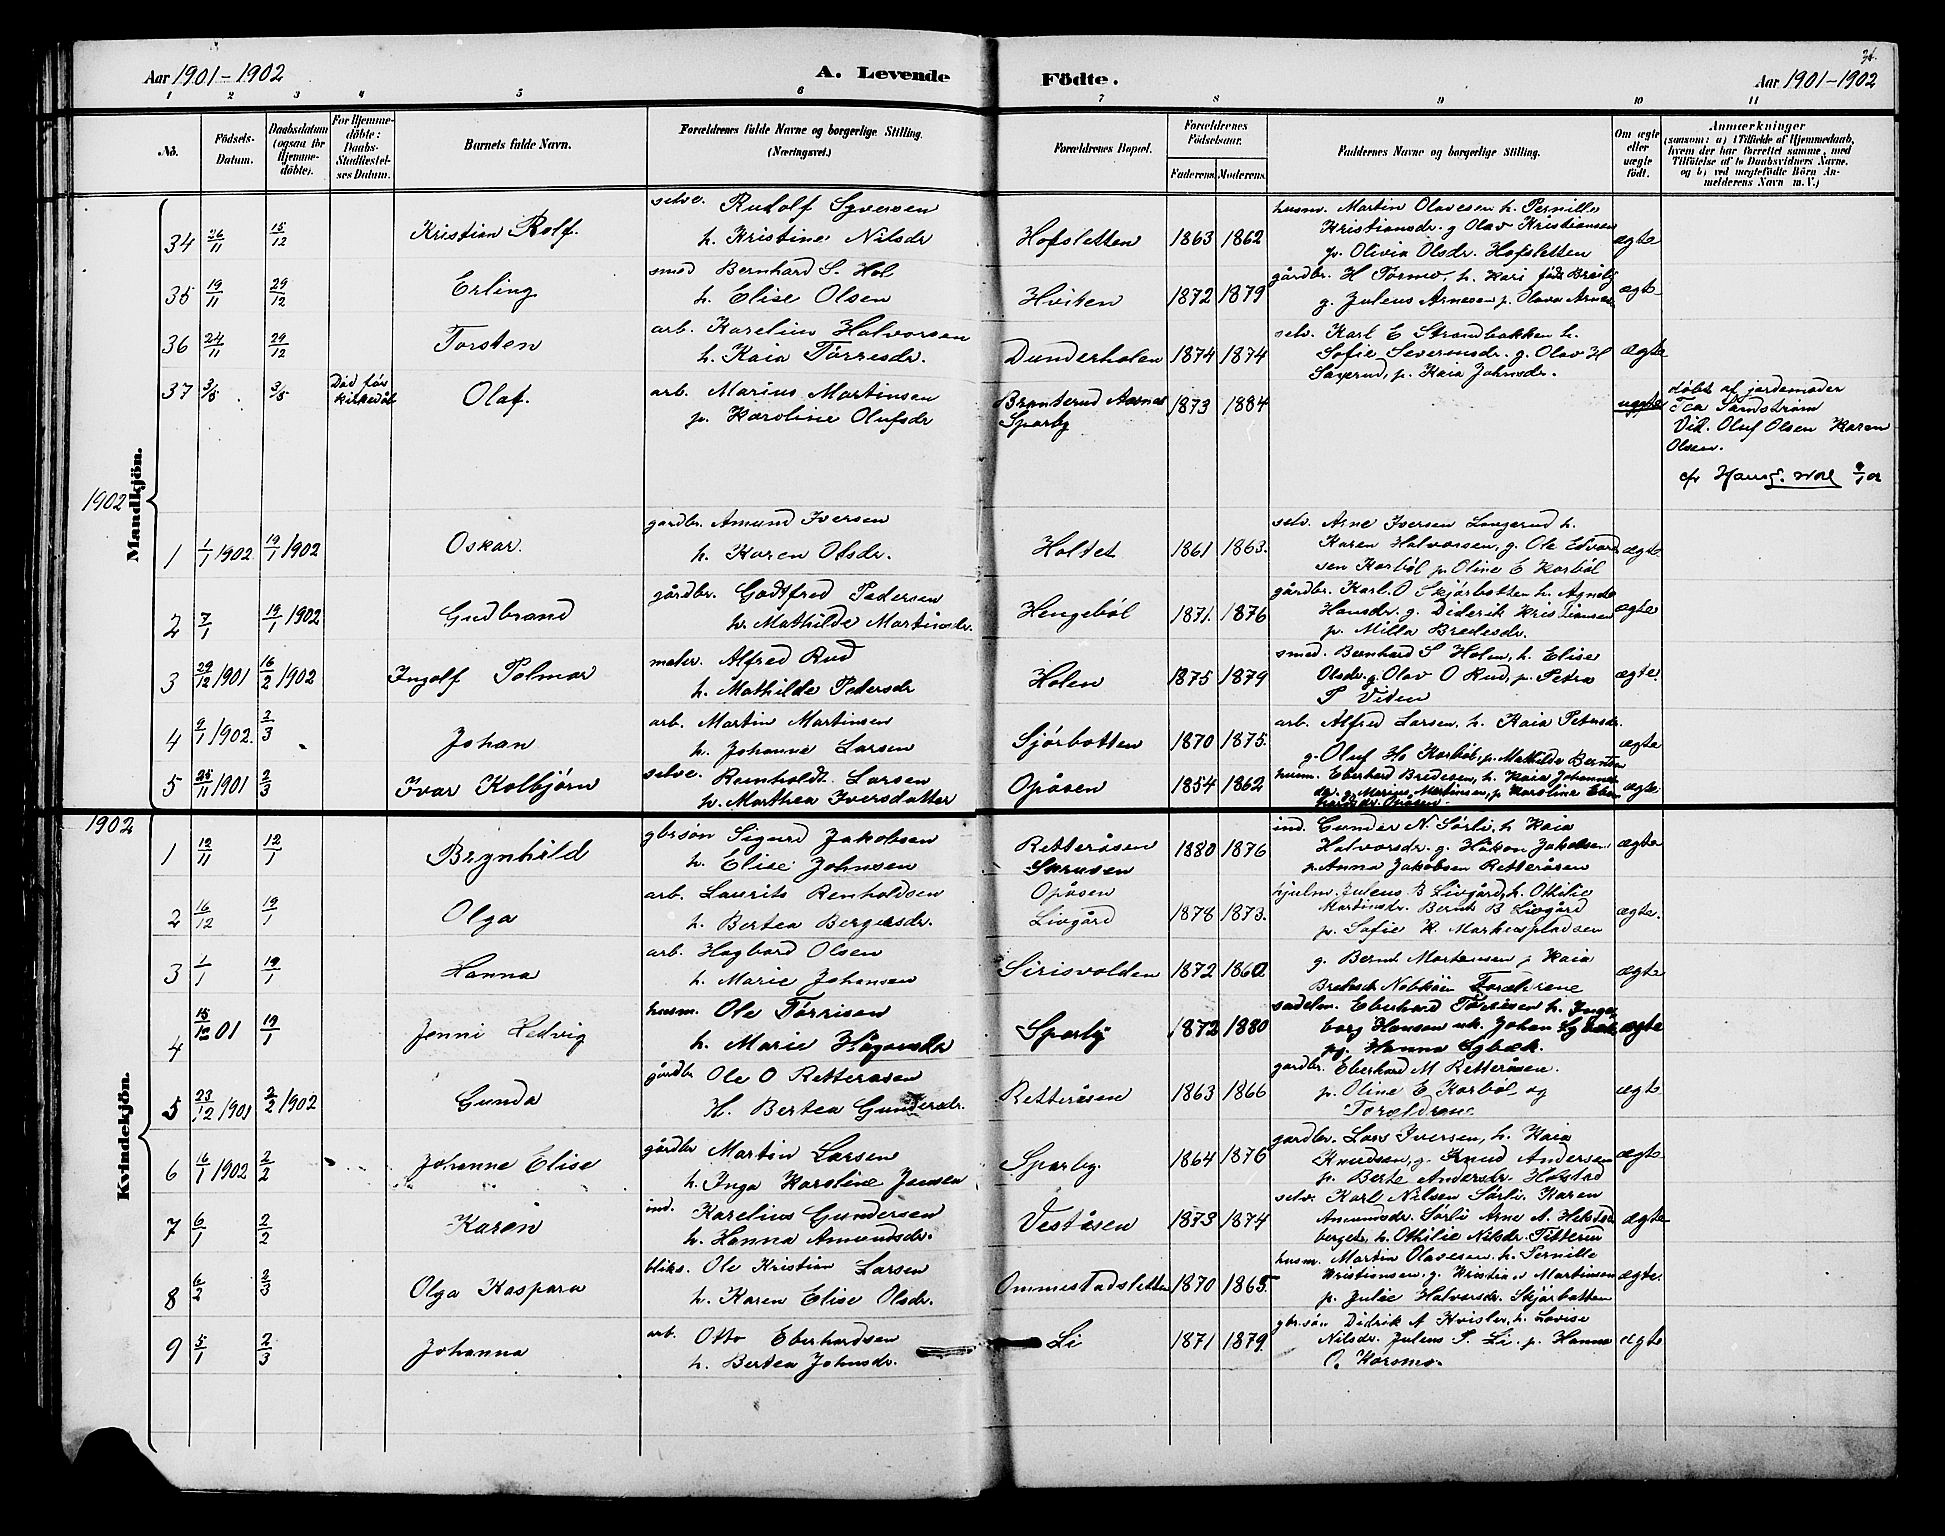 Aar 1901-1902
A. Levende
Födte.
36.
Aar 1901-1902
1 2 3 4 5 6 7 8 9 10 11
No.
Födsels-Datum.
Daabsdatum (ogsaa for Hjemme-döbte).
For Hjemme-döbte: Daabs-Stadfæstel-ses Datum.
Barnets fulde Navn.
Forældrenes fulde Navne og borgerlige Stilling. (Næringsvei.)
Forældrenes Bopæl.
Forældrenes Födselsaar.
Faderens. Moderens.
Faddernes Navne og borgerlige Stilling.
Om ægte eller uægte födt.
Anmærkninger
(saasom: a) i Tilfælde af Hjemmedaab, hvem der har forrettet samme, med Tilföielse af to Daabsvidners Navne, og b) ved uægtefödte Börn An-melderens Navn m. V.)
Mandkjön.
34 26/11 15/12 Kristian Rolf. selve. Rudolf Syversen
h. Kristine Nilsdr Hofsletten 1863 1862 husm. Martin Olavesen h. Pernille
Kristiansdr. g Olav Kristiansen
p. Olivia Olsdr. Hofsletten ægte
35 19/11 29/12 Erling smed Bernhard S. Hol
h. Elise Olsen Hviken 1872 1879 gårdbr. H Tørmo, h. Kari født Bråby
g. Julius Arnesen p. Olava Arnes ægte
36 24/11 29/12 Torsten arb. Karelius Halvorsen
h. Kaia Tørresdr. Dunderholen 1874 1874 selv. Karl E Strandbakken h.
Sofie Seversdr. g. Olav H
Sagerud, p. Kaia Johnsdr. ægte
37 3/5 3/5 Död før kirkedåb Olaf. arb. Marius Martinsen
p. Karoline Olufsdr Branterud Aasnes
Sparby 1873 1884 uægte døbt af jordemoder
Tea Sandstrøm
Vid. Oluf Olsen Karen
Olsen.
1902
1 1/1 1902 19/1 1902 Oskar. gårdbr. Amund Iversen
h. Karen Olsdr. Holtet 1861 1863. selv. Arne Iversen Langerud h.
Karen Halvorsen, g. Ole Edvard
sen Korbøl p. Oline E Korbøl ægte
2 7/1 19/1 1902 Gudbrand gårdbr. Godtfred Pedersen
h. Mathilde Martinsdr. Hengebøl 1871. 1876 gårdbr. Karl O Skjørbotten h. Agnde
Hansdr. g. Diderik Kristiansen
p. Milla Bredesdr. ægte
3 29/12 1901 16/2 1902 Ingolf Palmar maler. Alfred Rud
h. Mathilde Pedersdr Holen 1875 1879 smed. Bernhard S Holen, h. Elise
Olsdr. g. Olav O Rud, p. Petra
P Viten ægte.
4 9/1 1902. 2/3 Johan arb. Martin Martinsen
h. Johanne Larsen Sjørbotten 1870 1875. arb. Alfred Larsen, h. Kaia Petersdr.
g. Oluf H. Korbøl, p. Mathilde Berntsen ægte
5 25/11 1901 2/3 Ivar Kolbjørn selve. Reinholdt Larsen
h. Marthea Iversdatter Opåsen 1854 1862 husm. Eberhard Bredesen, h. Kaia Johannes
dr. g. Marius Martinsen, p Karoline Eber
hardsdr. Opåsen. ægte
1902
Kvindekjön.
1 12/11 12/1 Brynhild gbrsøn Sigurd Jakobsen
h. Elise Johnsen Retteråsen
Sørusen 1880 1876 ind. Gunder N. Sørli, h Kaia
Halvorsdr. g. Håkon Jakobsen
p. Anna Jakobsen Retteråsen ægte
2 16/12 19/1 Olga arb. Laurits Renholdsen
h. Bertea Bergersdr. Opåsen
Livgård 1878 1873. hjulm. Julius B Livgård, h. Othilie
Martinsdr. Bernt B Livgård
p. Sofie K. Markersplassen ægte.
3 1/1 19/1 Hanna arb. Hagbard Olsen
h. Marie Johansen Sirisvolden 1872 1860. g. Bernt Mortensen p Kaia
Bredesdr Nabkåen Forældrene ægte
4 15/10 01 19/1 Jenni Hedvig husm. Ole Tørrisen
h. Marie Hågensdr Sparby 1872 1880 sadelm. Eberhard Tørrisen h. Inge
borg Hansen uk. Johan Lybæk
pg. Hanna Lybæk. ægte
5 23/12 1901 2/2 1902 Gunda gårdbr Ole O Retteråsen
H. Bertea Gundersdr. Retteråsen 1863 1866 gardbr. Eberhard M Retteråsen.
p. Oline E Korbøl og
Forældrene ægte
6 16/1 1902 2/2 Johanne Elise gårdbr Martin Larsen
h. Inga Karoline Jensen Sparby. 1864 1876 gardbr. Lars Iversen, h. Kaia
Knudsen, g. Knud Andersen
p. Berte Andersdr. Hofstad ægte
7 6/1 2/2 Karen ind. Karelius Gundersen
h. Hanna Amundsdr. Veståsen 1873 1874 selv. Karl Nilsen Sørli. Karen
Amundsdr. Sørli Arne A. Hekstad
berget, h. Othilie Nilsdr. Titterud ægte
8 6/2 2/3 Olga Kaspara bliks. Ole Kristian Larsen
h. Karen Elise Olsdr. Ommestadsletten 1870 1865 husm. Martin Olavesen h. Pernille
Kristiansen, g. Kristian Martinsen
p. Julie Halvorsdr. Skjørbotten ægte.
9 5/1 2/3 Johanna arb. Otto Eberhardsen
h. Bertea Johnsdr. Li 1871 1879 gbr.søn Didrik A Kvisler, h. Lovise
Nilsdr. Julius P. Li, p. Hanna
O. Haromo. ægte